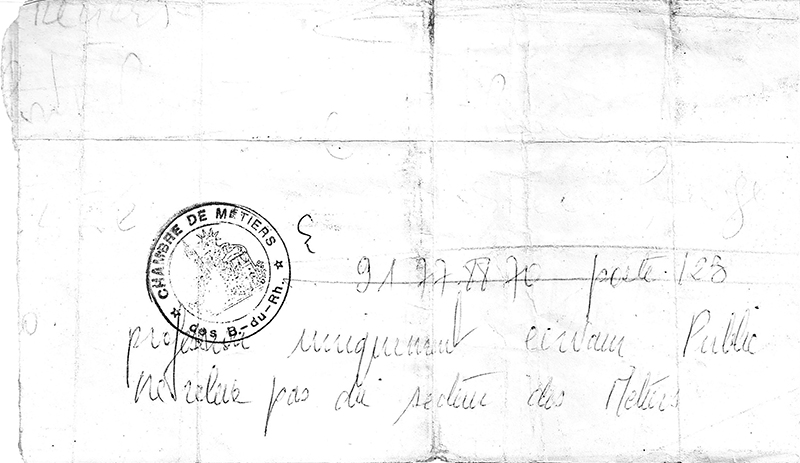 CHAMBRE DE MÉTIERS
des B.-du-Rh.
91 77 11 70 poste 123
profession uniquement écrivain Public
ne relève pas du secteur des Métiers